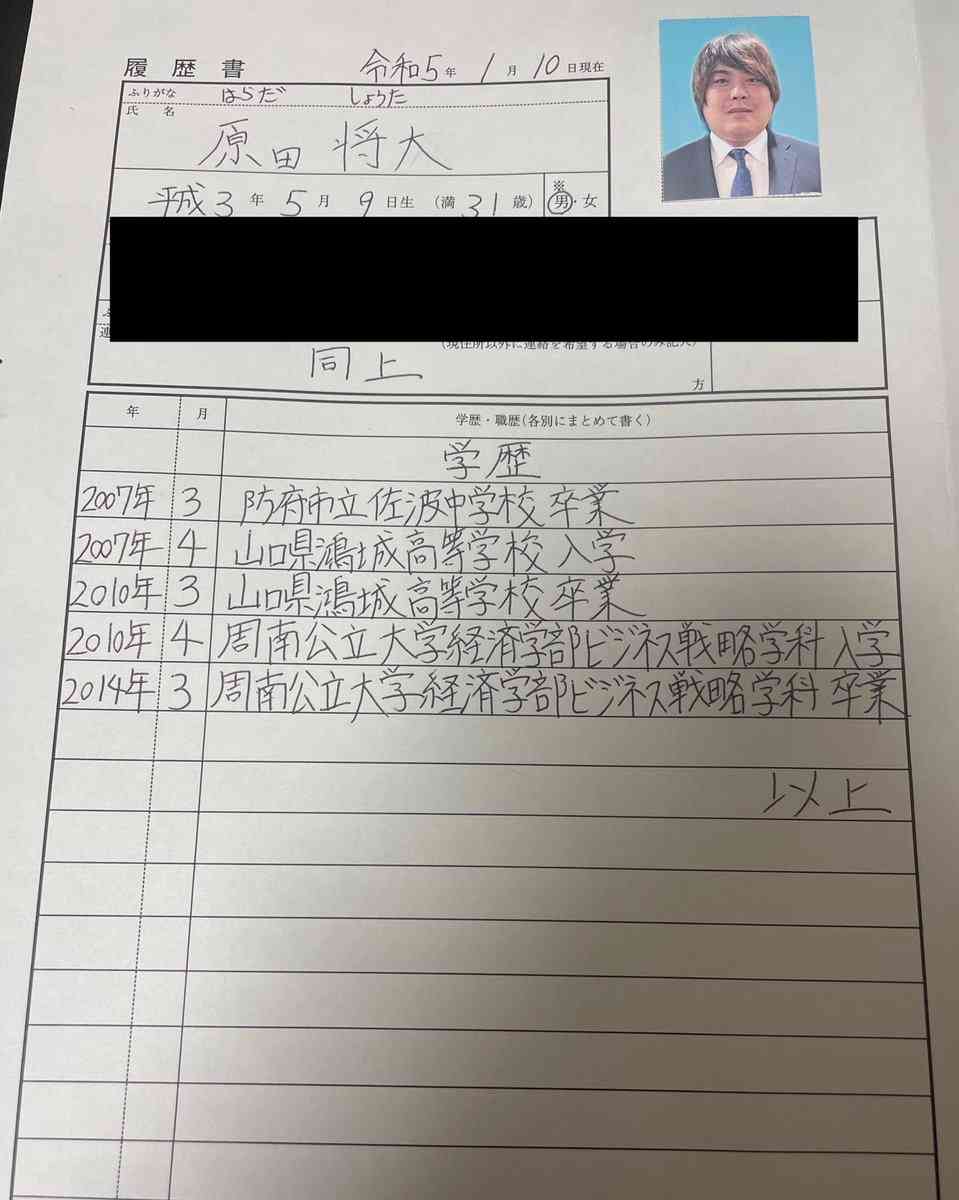 履歴書 令和5年 1月 10日現在
ふりがな はらだ しょうた
氏 名
原田 将大
平成3年 5月 9日生 (満31歳) ※ 男・女
(現住所以外に連絡を希望する場合のみ記入)
同上
方
年 月 学歴・職歴(各別にまとめて書く)
学歴
2007年 3 防府市立佐波中学校 卒業
2007年 4 山口県鴻城高等学校 入学
2010年 3 山口県鴻城高等学校 卒業
2010年 4 周南公立大学経済学部ビジネス戦略学科 入学
2014年 3 周南公立大学経済学部ビジネス戦略学科 卒業
以上